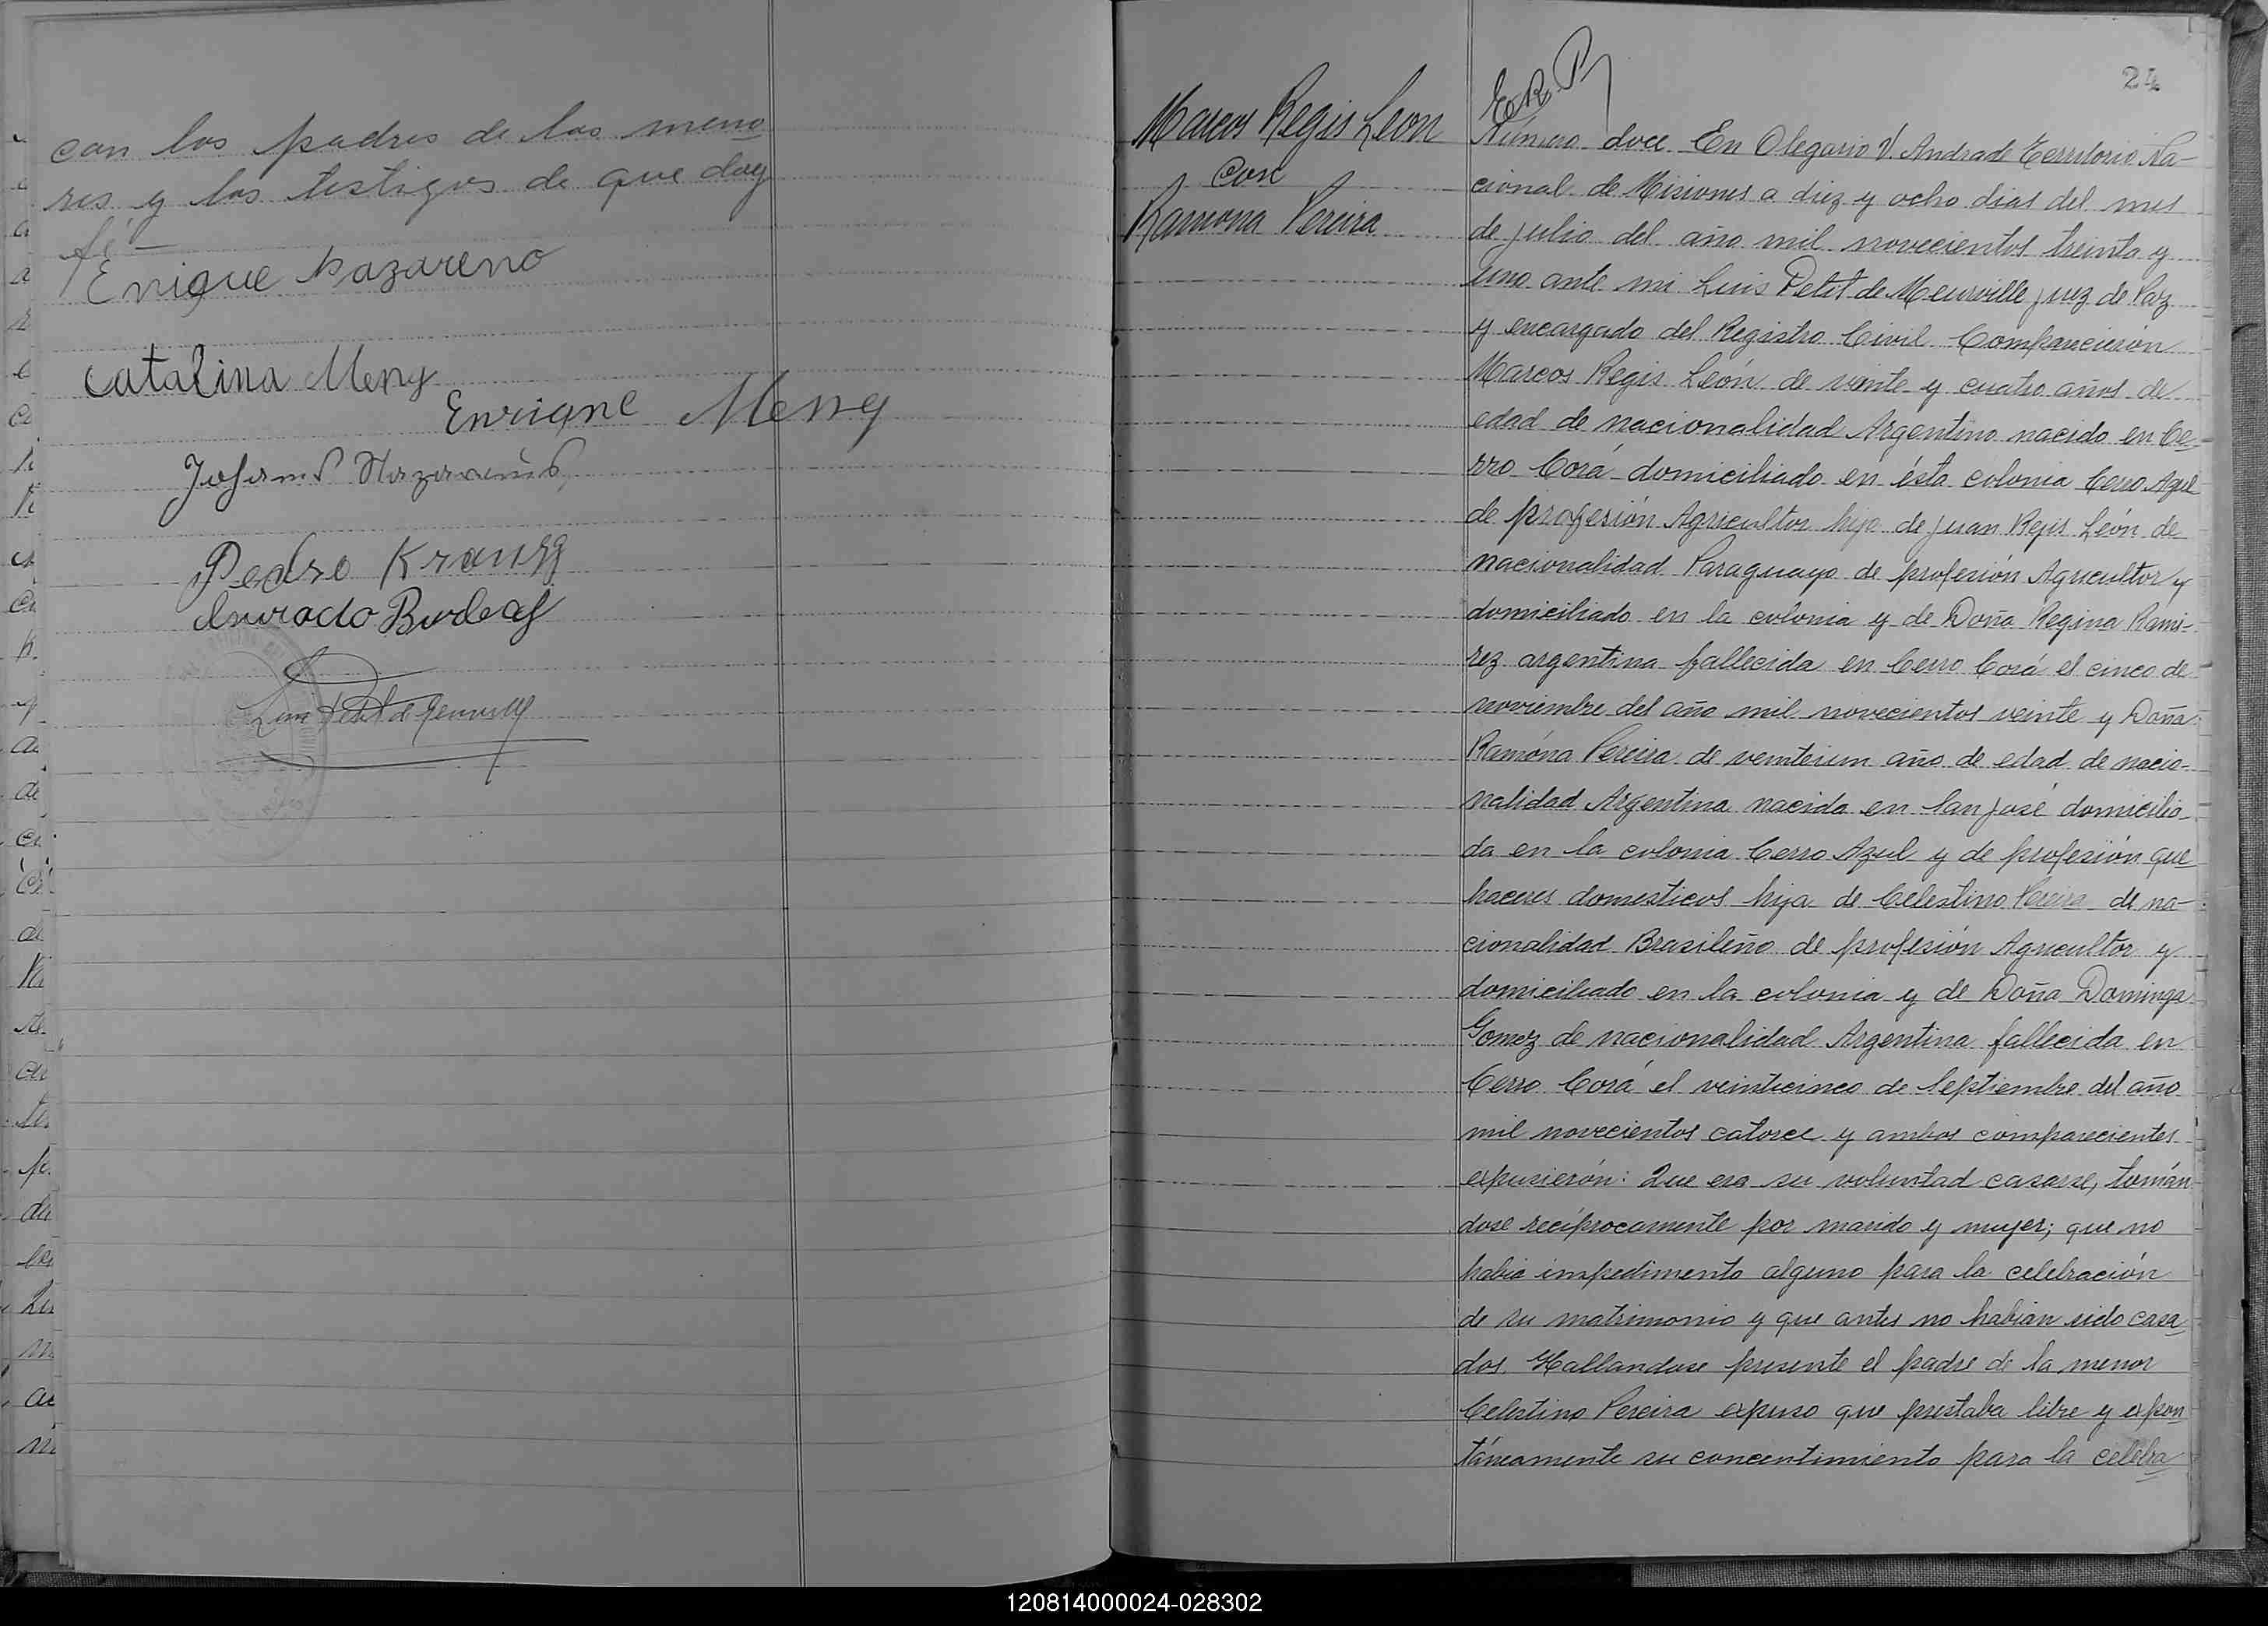 con los padres de los meno
res y los testigos de que doy
fé —
Enrique Nazareno
Catalina Meny
Enrique Meny
Pedro Krauss
24
E.R.P.
Marcos Regis Leon
con
Ramona Pereira
Número doce En Olegario V. Andrade Territorio Na-
cional de Misiones a diez y ocho dias del mes
de julio del año mil novecientos treinta y
uno ante mi Luis Petit de Meurville juez de Paz
y encargado del Registro Civil Comparecierón
Marcos Regis León de veinte y cuatro años de
edad de nacionalidad Argentino nacido en Ce-
rro Corá domiciliado en ésta colonia Cerro Azul
de profesión Agricultor hijo de Juan Regis León de
nacionalidad Paraguayo de profesión Agricultor y
domiciliado en la colonia y de Doña Regina Rami-
rez argentina fallecida en Cerro Corá el cinco de
noviembre del año mil novecientos veinte y Doña
Ramóna Pereira de veinteiun año de edad de nacio-
nalidad Argentina nacida en San José domicilia-
da en la colonia Cerro Azul y de profesión que
haceres domesticos hija de Celestino Pereira de na-
cionalidad Brasileño de profesión Agricultor y
domiciliado en la colonia y de Doña Dominga
Gomez de nacionalidad Argentina fallecida en
Cerro Corá el veinticinco de Septiembre del año
mil novecientos catorce y ambos comparecientes
expusierón: Que era su voluntad casarse, tomán
dose recíprocamente por marido y mujer; que no
habia impedimento alguno para la celebración
de su matrimonio y que antes no habian sido casa
dos. Hallandose presente el padre de la menor
Celestino Pereira expuso que prestaba libre y expon
táneamente su concentimiento para la celebra
120814000024-028302